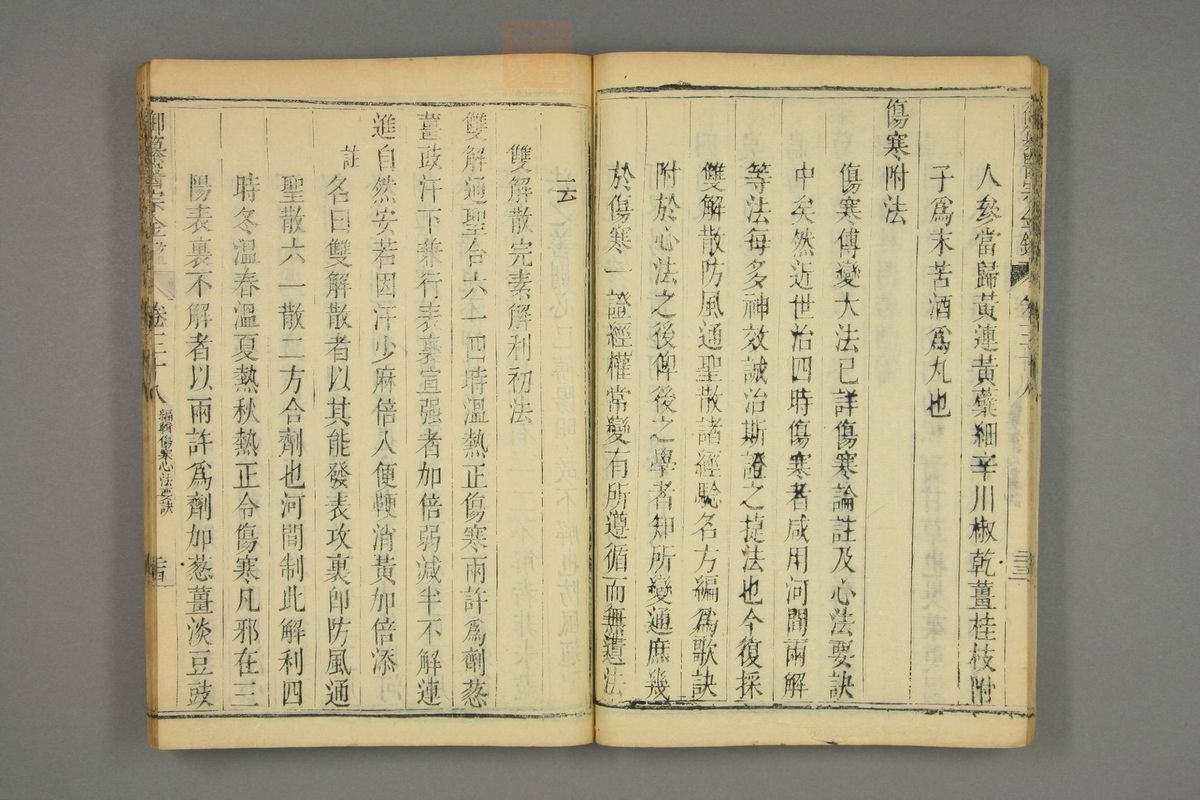 人參當歸黃連黃蘗細辛川椒乾薑桂枝附
子爲末苦酒爲丸也
傷寒附法
傷寒傳變大法已詳傷寒論註及心法要訣
中矣然近世治四時傷寒者咸用河間兩解
等法每多神效誠治斯證之捷法也今復採
雙解散防風通聖散諸經驗名方編爲歌訣
附於心法之後俾後之學者知所變通庶幾
於傷寒一證經權常變有所遵循而無遺法
云
雙解散完素解利初法
雙解通聖合六一四時溫熱正傷寒兩許爲劑葱
薑豉汗下兼行表裏宣强者加倍弱減半不解連
進自然安若因汗少麻倍入便鞕消黃加倍添
註
名曰雙解散者以其能發表攻裏卽防風通
聖散六一散二方合劑也河間制此解利四
時冬溫春溫夏熱秋熱正令傷寒凡邪在三
陽表裏不解者以兩許爲劑加葱薑淡豆豉
御纂醫宗金鑑
卷三十八
編輯傷寒心法要訣